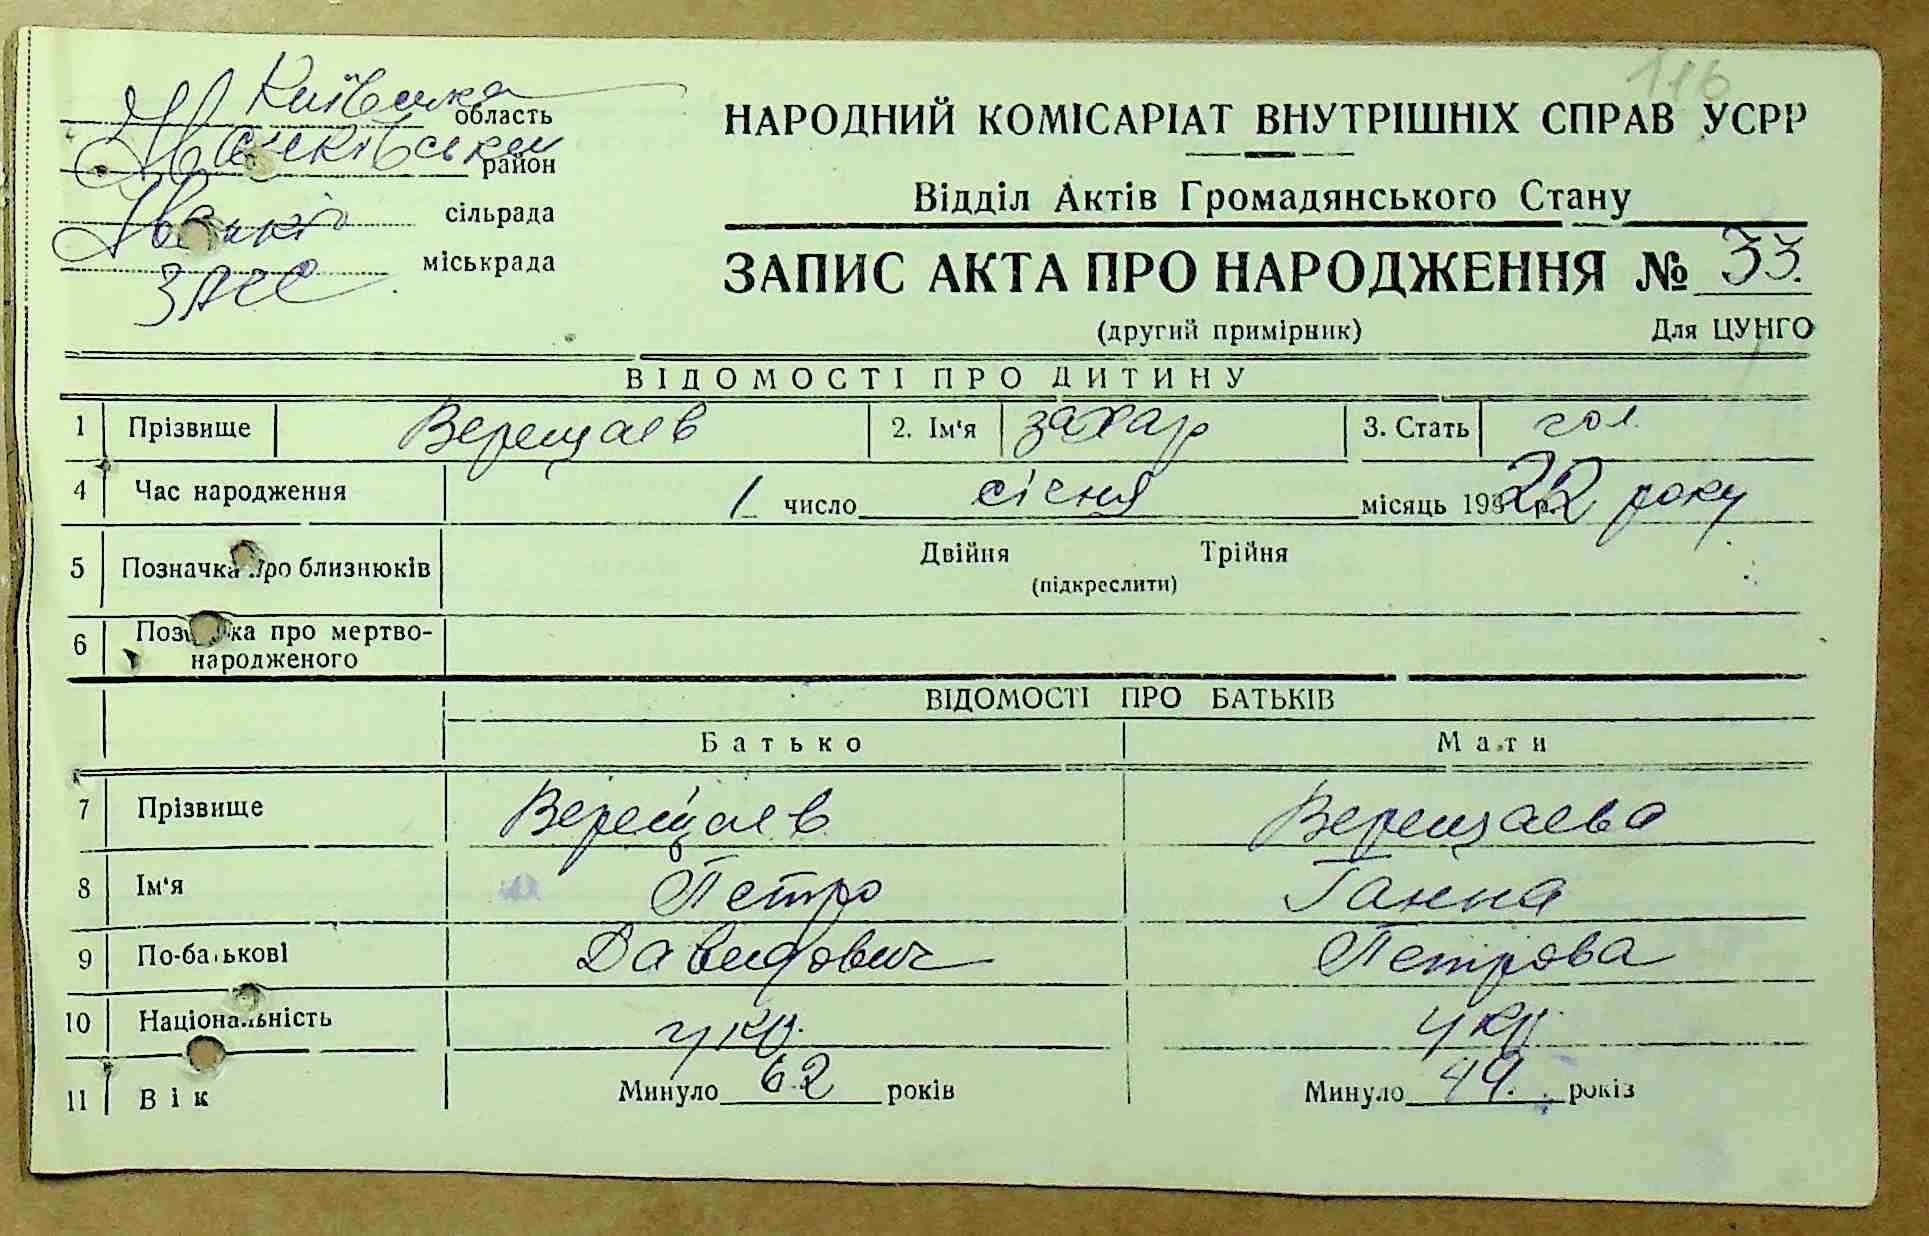 116
Київська область
Іванківський район
Іванків сільрада
міськрада
ЗАГС
НАРОДНИЙ КОМІСАРІАТ ВНУТРІШНІХ СПРАВ УСРР
Відділ Актів Громадянського Стану
ЗАПИС АКТА ПРО НАРОДЖЕННЯ № 33.
(другий примірник) Для ЦУНГО
ВІДОМОСТІ ПРО ДИТИНУ
1 Прізвище Верещаєв 2. Ім'я Захар 3. Стать чол.
4 Час народження 1 число січня місяць 1922 року
5 Позначка про близнюків Двійня Трійня
(підкреслити)
6 Позначка про мертво-
народженого
ВІДОМОСТІ ПРО БАТЬКІВ
Батько Мати
7 Прізвище Верещаєв Верещаєва
8 Ім'я Петро Ганна
9 По-батькові Давидович Петрова
10 Національність укр. укр.
11 Вік Минуло 62 років Минуло 49. років